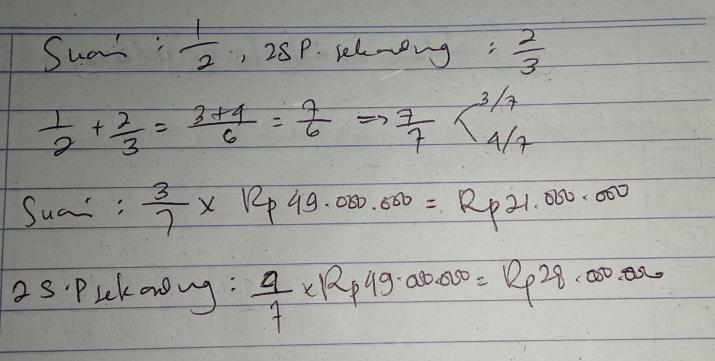 Suami : 1/2, 2 S P. sekandung : 2/3
1/2 + 2/3 = 3+4/6 = 7/6 => 7/7 < 3/7 4/7
Suami : 3/7 x Rp 49.000.000 = Rp 21.000.000
2 S.P sekandung : 4/7 x Rp 49.000.000 = Rp 28.000.000